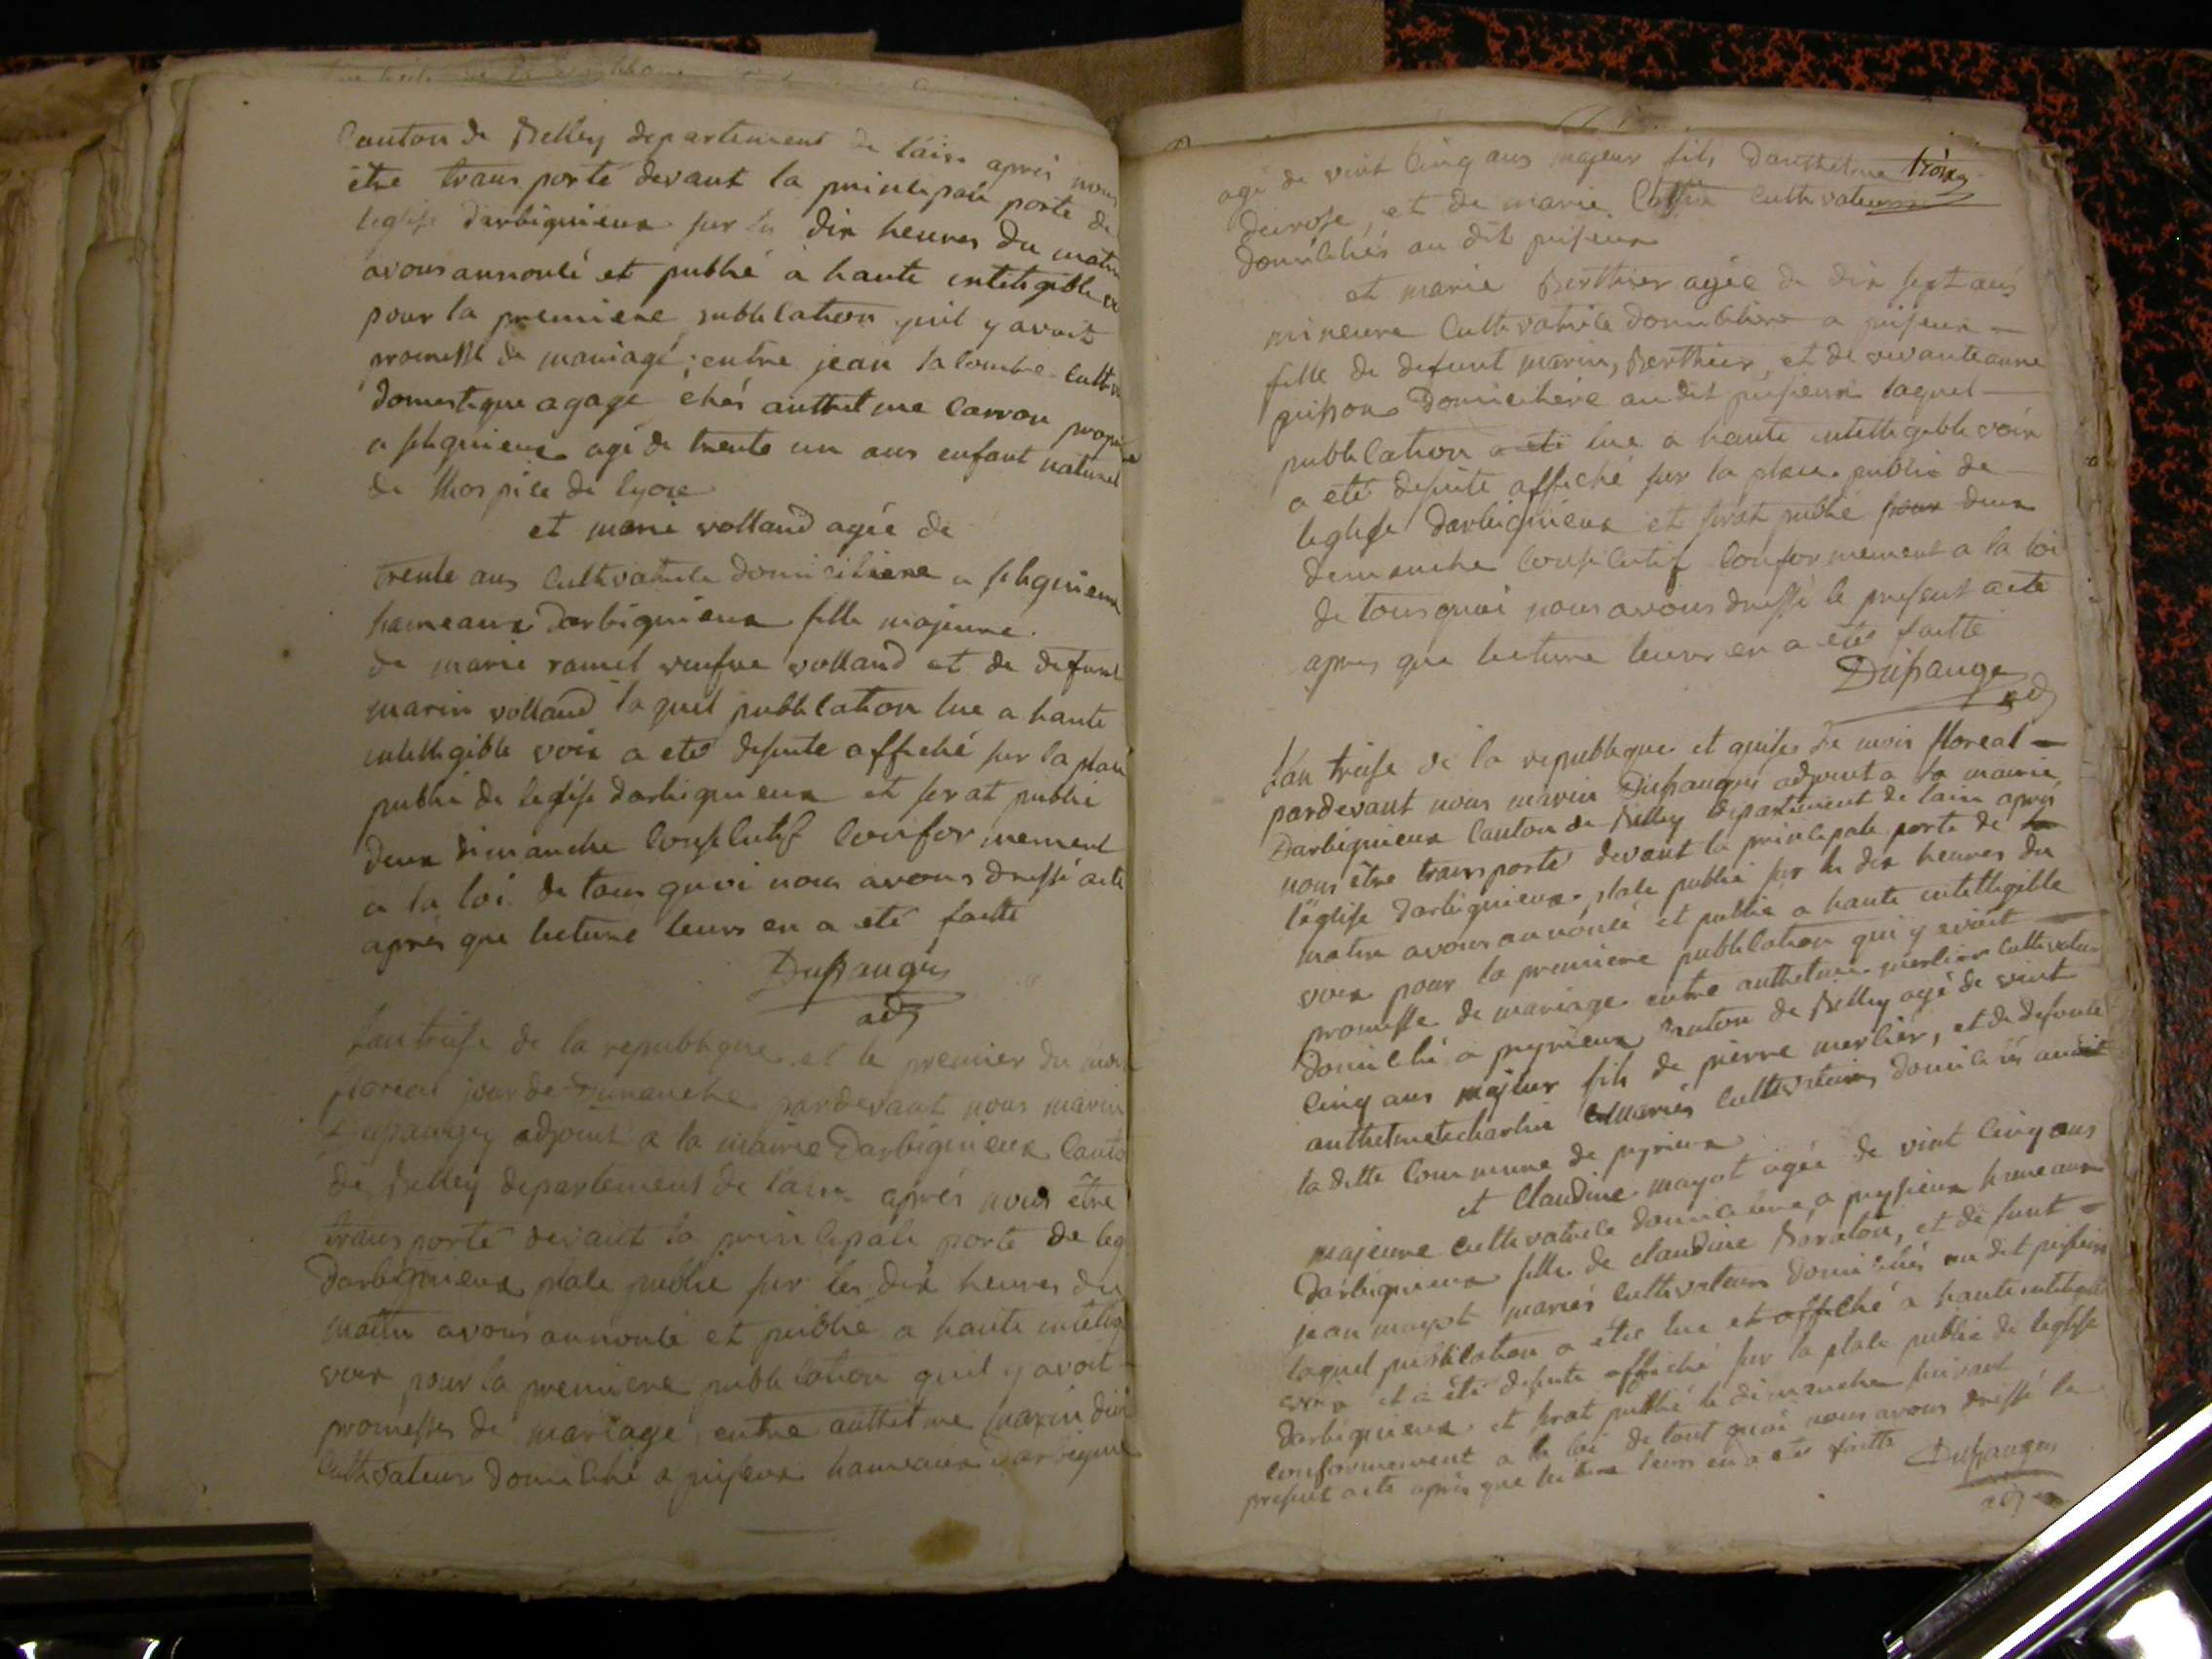 Canton de Belley departement de lain aprés nous
être transporté devant la principale porte de
leglise darbignieux sur les dix heures du matin
avons annoncé et publié a haute intelegible
pour la premiere publication quil y avoit
promesse de mariagé entre jean lacombe
domestique a gage chés anthelme Carron
a age de trente un ans enfant naturel
de lhospice de lyon
et marie volland agée de
trente ans Cultivatrice domiciliere a
hameaux Darbignieux fille majeure
de marie ramel veufve volland et de defunt
marin volland laquel publication lue a haute
intelligible voix a eté desuite affiché sur la place
public de leglise darbignieux et serat publié
deux dimanche Consecutif Conformement
a la loi de tous quoi nous avons dressé acte
après que lecture leurs en a eté faitte
Dupraugey
adj
Lan treise de la republique et le premier du mois
floreal jour de Dimanche pardevant nous marin
adjoint a la mairie Darbignieux Canto
de Belley departement de lain aprés nous être
transporté devant la principale porte de leg
Darbignieux place public sur les dix heures du
matin avons annoncé et publié a haute intelig
voix pour la premiere publication quil y avoit
promesses de mariage entre anthelme
Cultivateur domicilié a hameaux darbignie
troix
agé de vint Cinq ans majeur fils Danthelme
et de marie Cultivateurs
domiciliés au dit
et marie Berthier agée de dix sept ans
mineure Cultivatrice domiciliere a
fille de defunt marin Berthier et de vivante anne
domiciliere audit laquel
publication a eté lue a haute intelligible voix
a eté desuite affiché sur la place public de
leglise Darbignieux et serat publié pour deux
dimanche Consecutif Conformement a la loi
de tous quoi nous avons dressé le present acte
apres que lecture leurs en a eté faitte
Dupraugey
adj
Lan treise de la republique et quise de mois floreal
pardevant nous marin adjoint a la mairie
Darbignieux Canton de Belley departement de lain aprés
nous être transporté devant la principale porte de la
léglise darbignieux place public sur les dix heures du
matin avons annoncé et publié a haute intelligible
voix pour la premiere publication qui y avoit
promesse de mariage entre anthelme merlier Cultivateur
domicilié a canton de Belley agé de vint
Cinq ans majeur fils de pierre merlier, et de defunte
mariés Cultivateurs domiciliés audit
laditte Commune de
et Claudine mayot agée de vint Cinq ans
majeure Cultivatrice domiciliere a hameaux
Darbignieux fille de claudine et de funt
jean mayot mariés Cultivateurs domiciliés au dit
laquel publication a étée lue et affiché a haute intelligible
voix et a été desuite affiché sur la place public de leglise
darbignieux et serat publié le dimanche suivant
conformement a la loi de tout quoi nous avons dressé le
present acte aprés que lecture leurs en a eté faitte
Dupraugey
adj